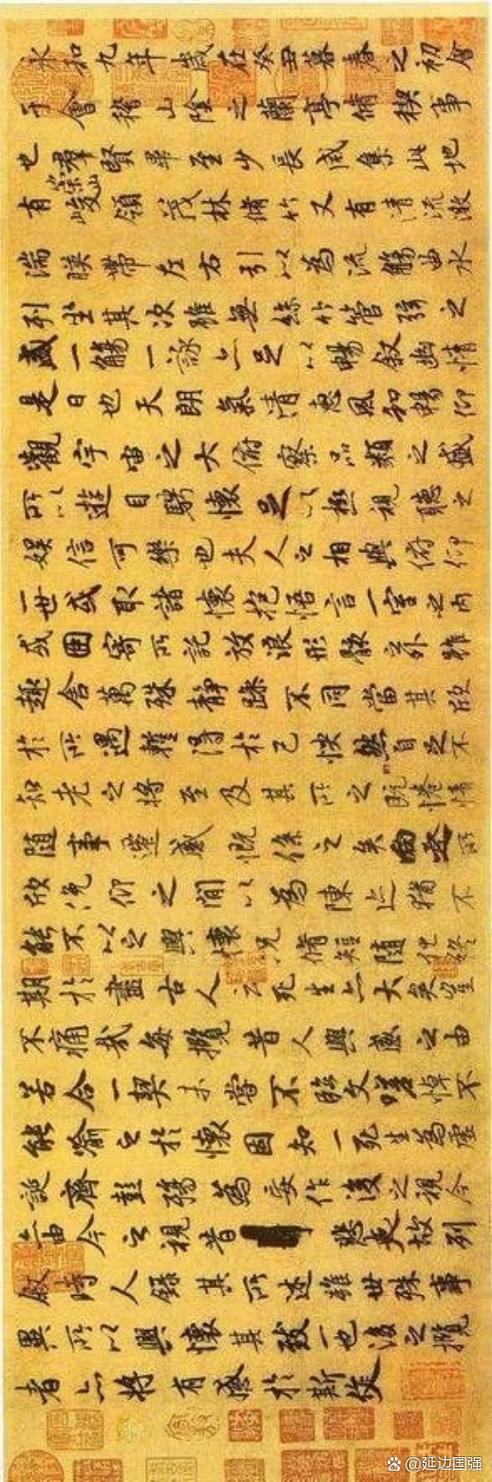 永和九年歲在癸丑暮春之初會
于會稽山陰之蘭亭脩稧事
也羣賢畢至少長咸集此地
有崇山峻領茂林脩竹又有清流激
湍暎帶左右引以為流觴曲水
列坐其次雖無絲竹管弦之
盛一觴一詠亦足以暢敘幽情
是日也天朗氣清惠風和暢仰
觀宇宙之大俯察品類之盛
所以遊目騁懷足以極視聽之
娛信可樂也夫人之相與俯仰
一世或取諸懷抱悟言一室之內
或因寄所託放浪形骸之外雖
趣舍萬殊靜躁不同當其欣
於所遇蹔得於己怏然自足不
知老之將至及其所之既惓情
隨事遷感慨係之矣向之所
欣俛仰之閒以為陳迹猶不
能不以之興懷況脩短隨化終
期於盡古人云死生亦大矣豈
不痛哉每攬昔人興感之由
若合一契未嘗不臨文嗟悼不
能喻之於懷固知一死生為虛
誕齊彭殤為妄作後之視今
亦由今之視昔悲夫故列
敘時人錄其所述雖世殊事
異所以興懷其致一也後之攬
者亦將有感於斯文
@延边国强